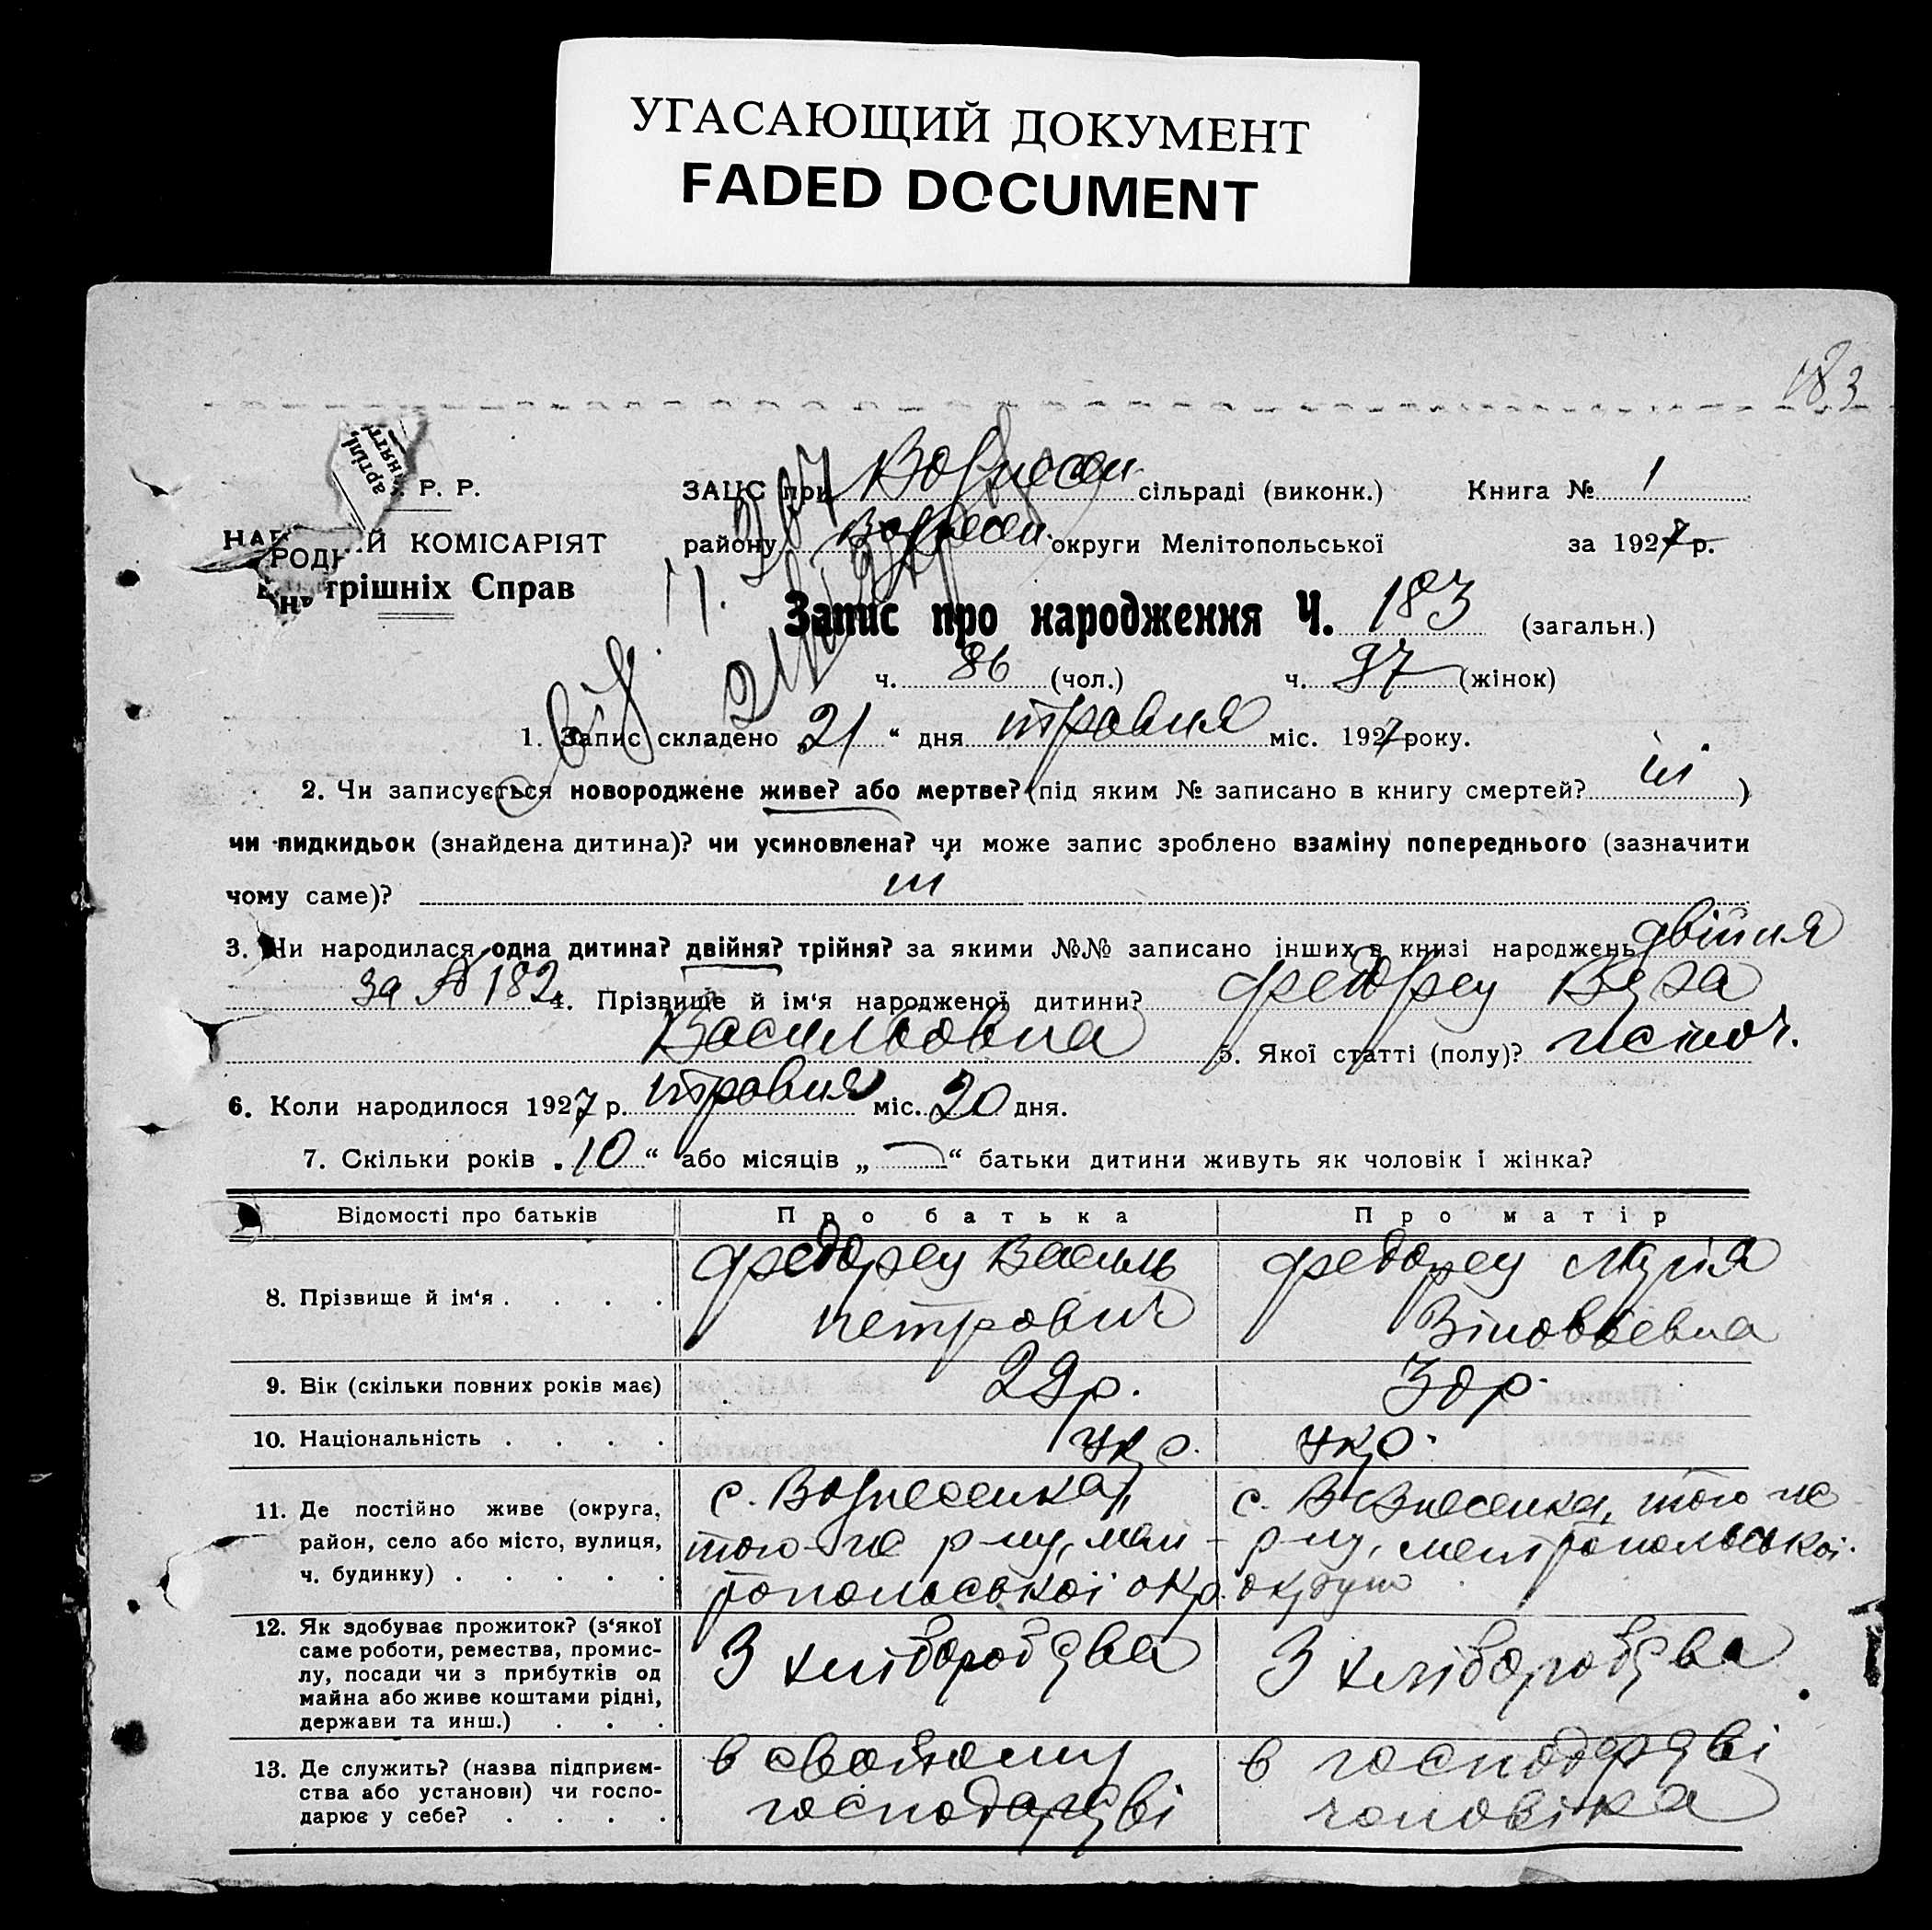 УГАСАЮЩИЙ ДОКУМЕНТ
FADED DOCUMENT
183
артілі,
Р. Р.
НАРОДНИЙ КОМІСАРІЯТ
трішніх Справ
ЗАЦС при Вознесен. сільраді (виконк.) Книга № 1
району Вознесен. округи Мелітопольської за 1927 р.
Запис про народження Ч. 183 (загальн.)
ч. 86 (чол.) ч. 97 (жінок)
1. Запис складено „21“ дня травня міс. 1927 року.
2. Чи записується новороджене живе? або мертве? (під яким № записано в книгу смертей? ні )
чи пидкидьок (знайдена дитина)? чи усиновлена? чи може запис зроблено взаміну попереднього (зазначити
чому саме)? ні
3. Чи народилася одна дитина? двійня? трійня? за якими №№ записано інших в книзі народжень двійня
за № 182 4. Прізвище й ім‘я народженої дитини? Федорец Вера
Васильовна 5. Якої статті (полу)? жіноч.
6. Коли народилося 1927 р. травня міс. 20 дня.
7. Скільки років „10“ або місяців „—“ батьки дитини живуть як чоловік і жінка?
Відомості про батьків Про батька Про матір
8. Прізвище й ім‘я . . . . Федорец Василь Петрович Федорец Марія Зіновьевна
9. Вік (скільки повних років має) 29 р. 30 р.
10. Національність . . . . укр. укр.
11. Де постійно живе (округа, район, село або місто, вулиця, ч. будинку) . . . . . с. Вознесенка, того-же р-ну, мелітопольської окр. с. Вознесенка, того же р-ну, мелітопольської округи
12. Як здобуває прожиток? (з‘якої саме роботи, ремества, промислу, посади чи з прибутків од майна або живе коштами рідні, держави та инш.) . . . З хліборобства З хліборобства
13. Де служить? (назва підприємства або установи) чи господарює у себе? . . . . в своїому господарстві в господарстві чоловіка